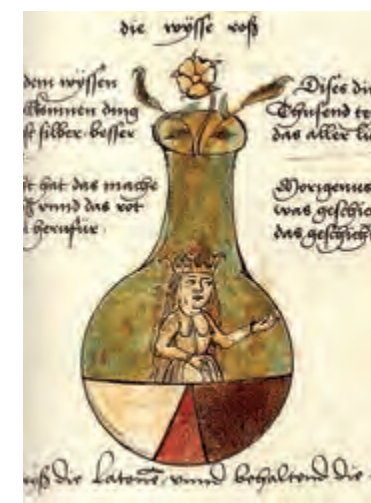 die wysse roß
dem wyssen
ding
st silber besser
t hat das mache
vnnd das rot
herufür
Dises di
Thusend
das aller li
Morigenus
was geschic
das geschich
die Latone vnnd behaltend die